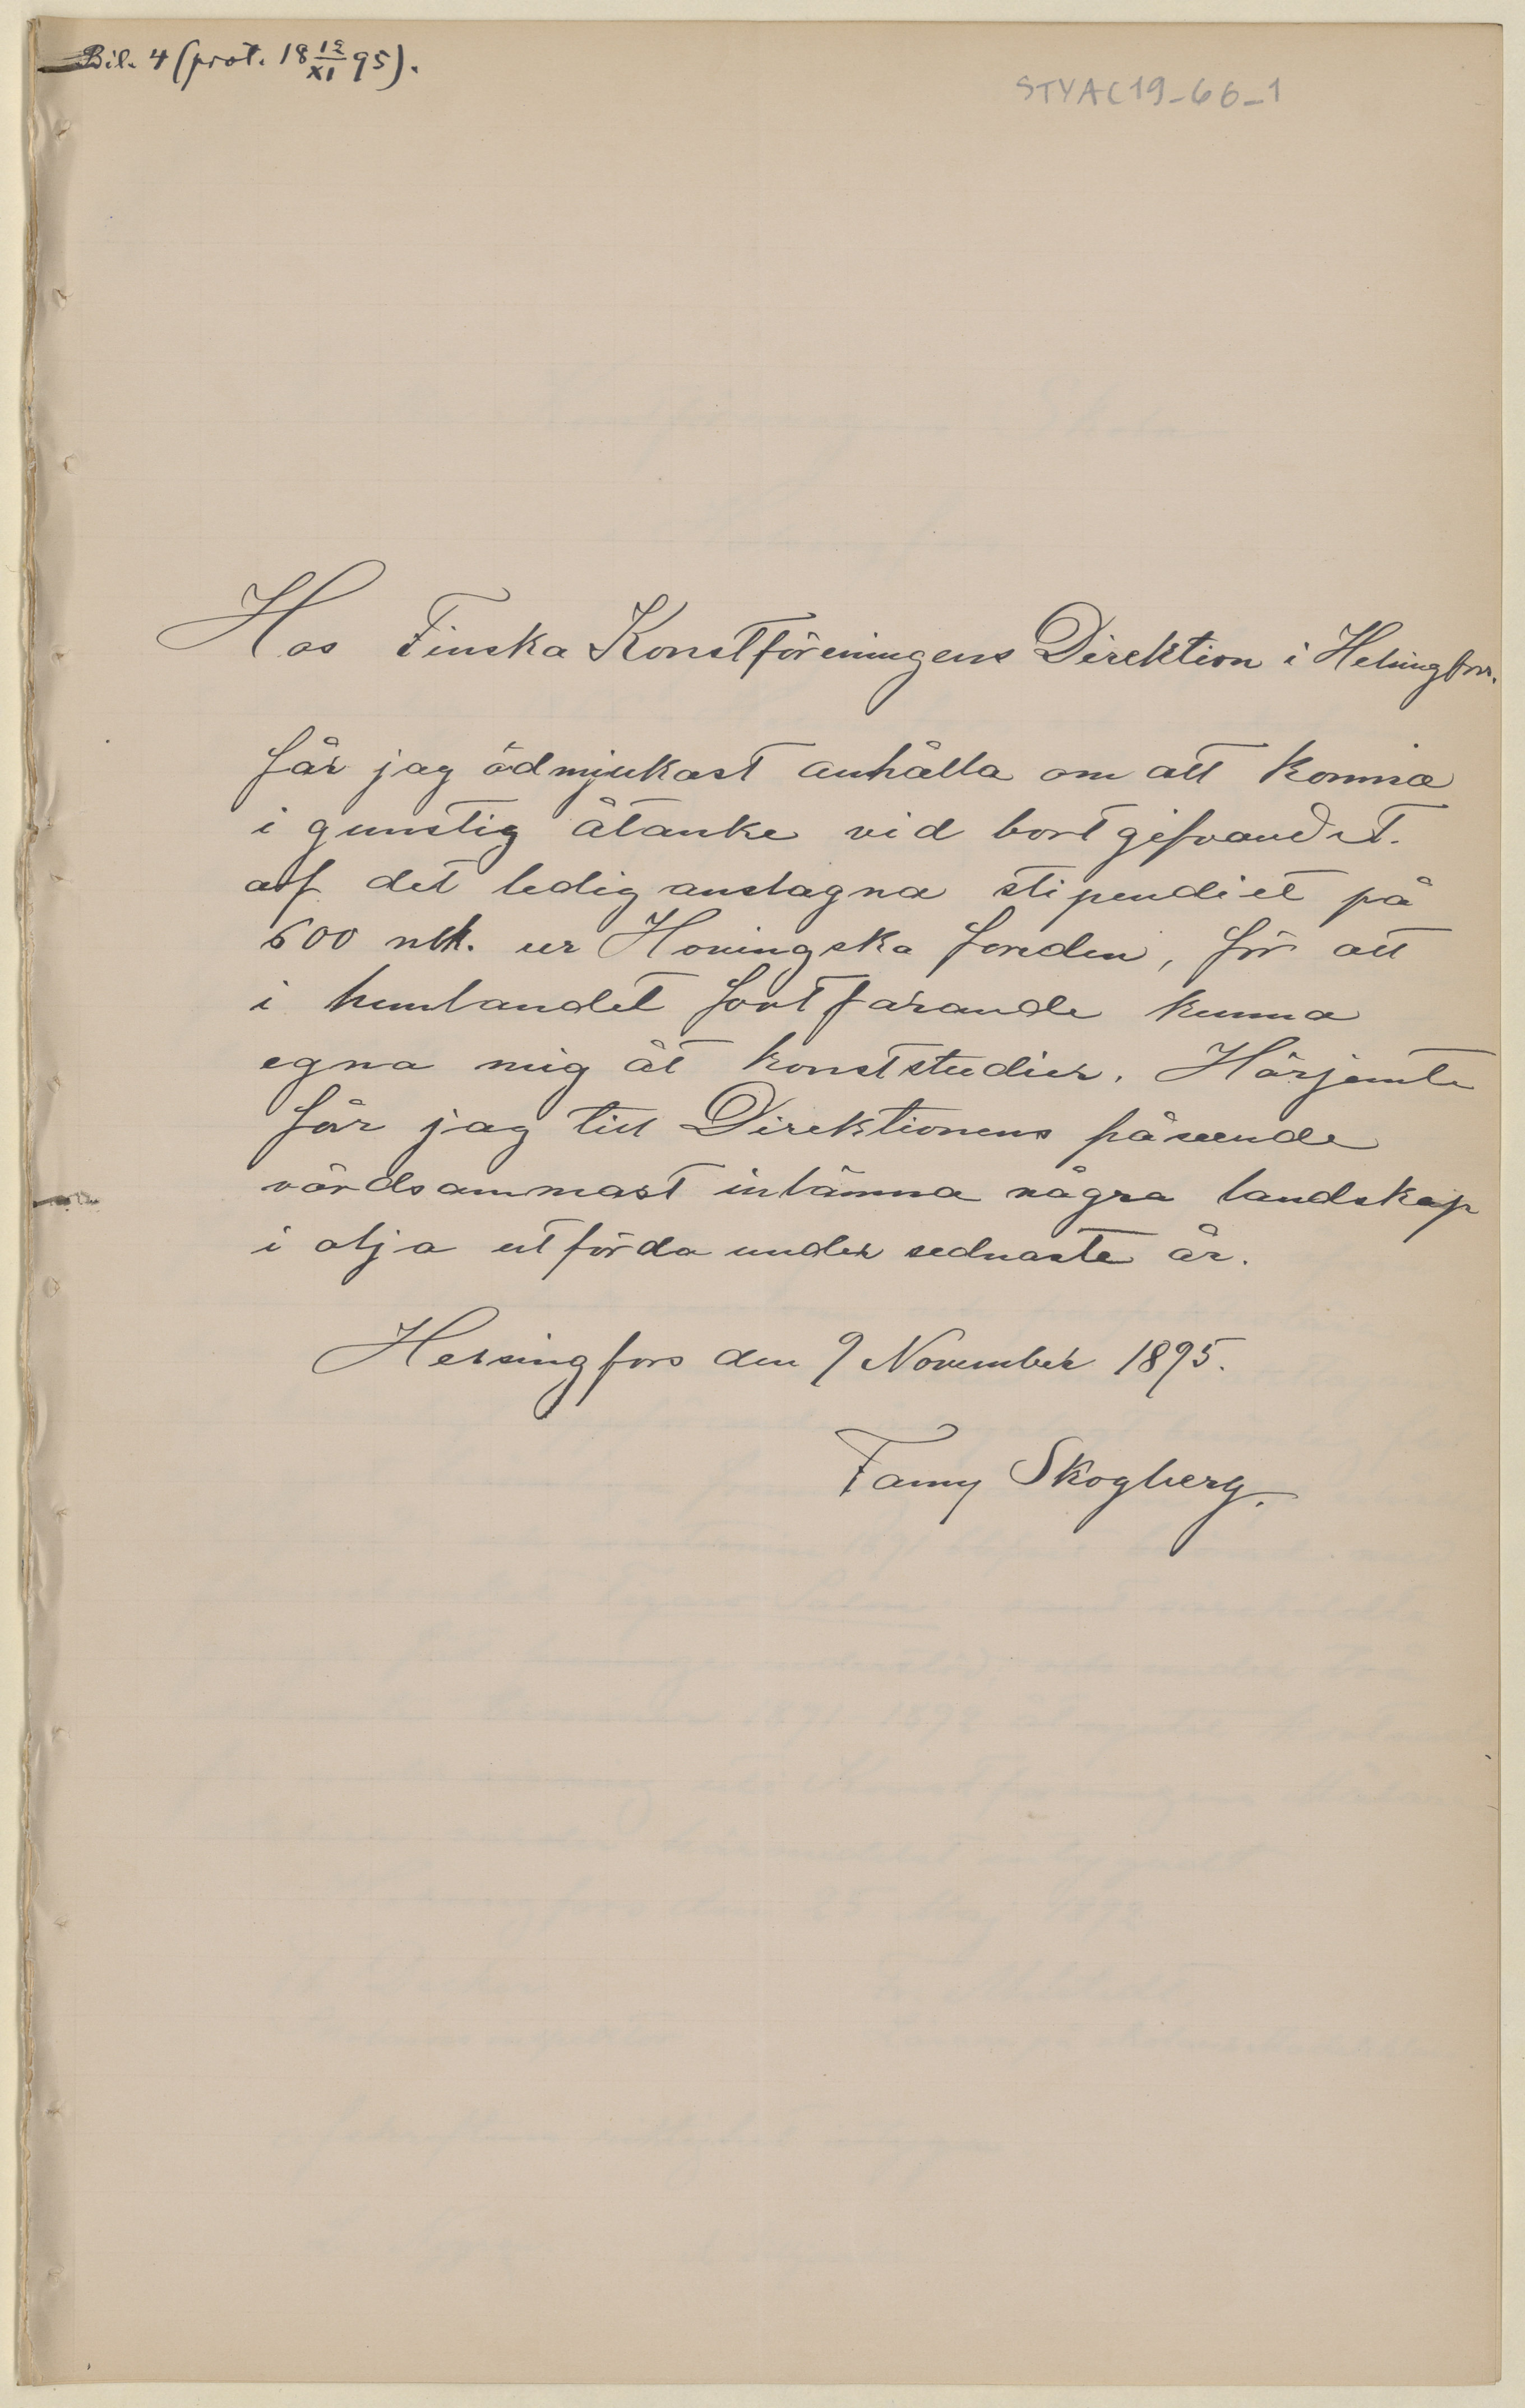 Bil. 4 (prot. 18 12/XI 95).
STYAC19-66-1
Hos Finska Konstföreningens Direktion i Helsingfors.
får jag ödmjukast anhålla om att komma
i gunstig åtanke vid bortgifvandet.
af det ledig anslagna stipendiet på
600 mk. ur Hovingska fonden, för att
i hemlandet fortfarande kunna
egna mig åt konststudier. Härjemte
får jag till Direktionens påseende
vördsammast inlämna några landskap
i olja utförda under sednaste år.
Helsingfors den 9 November 1895.
Fanny Skogberg.